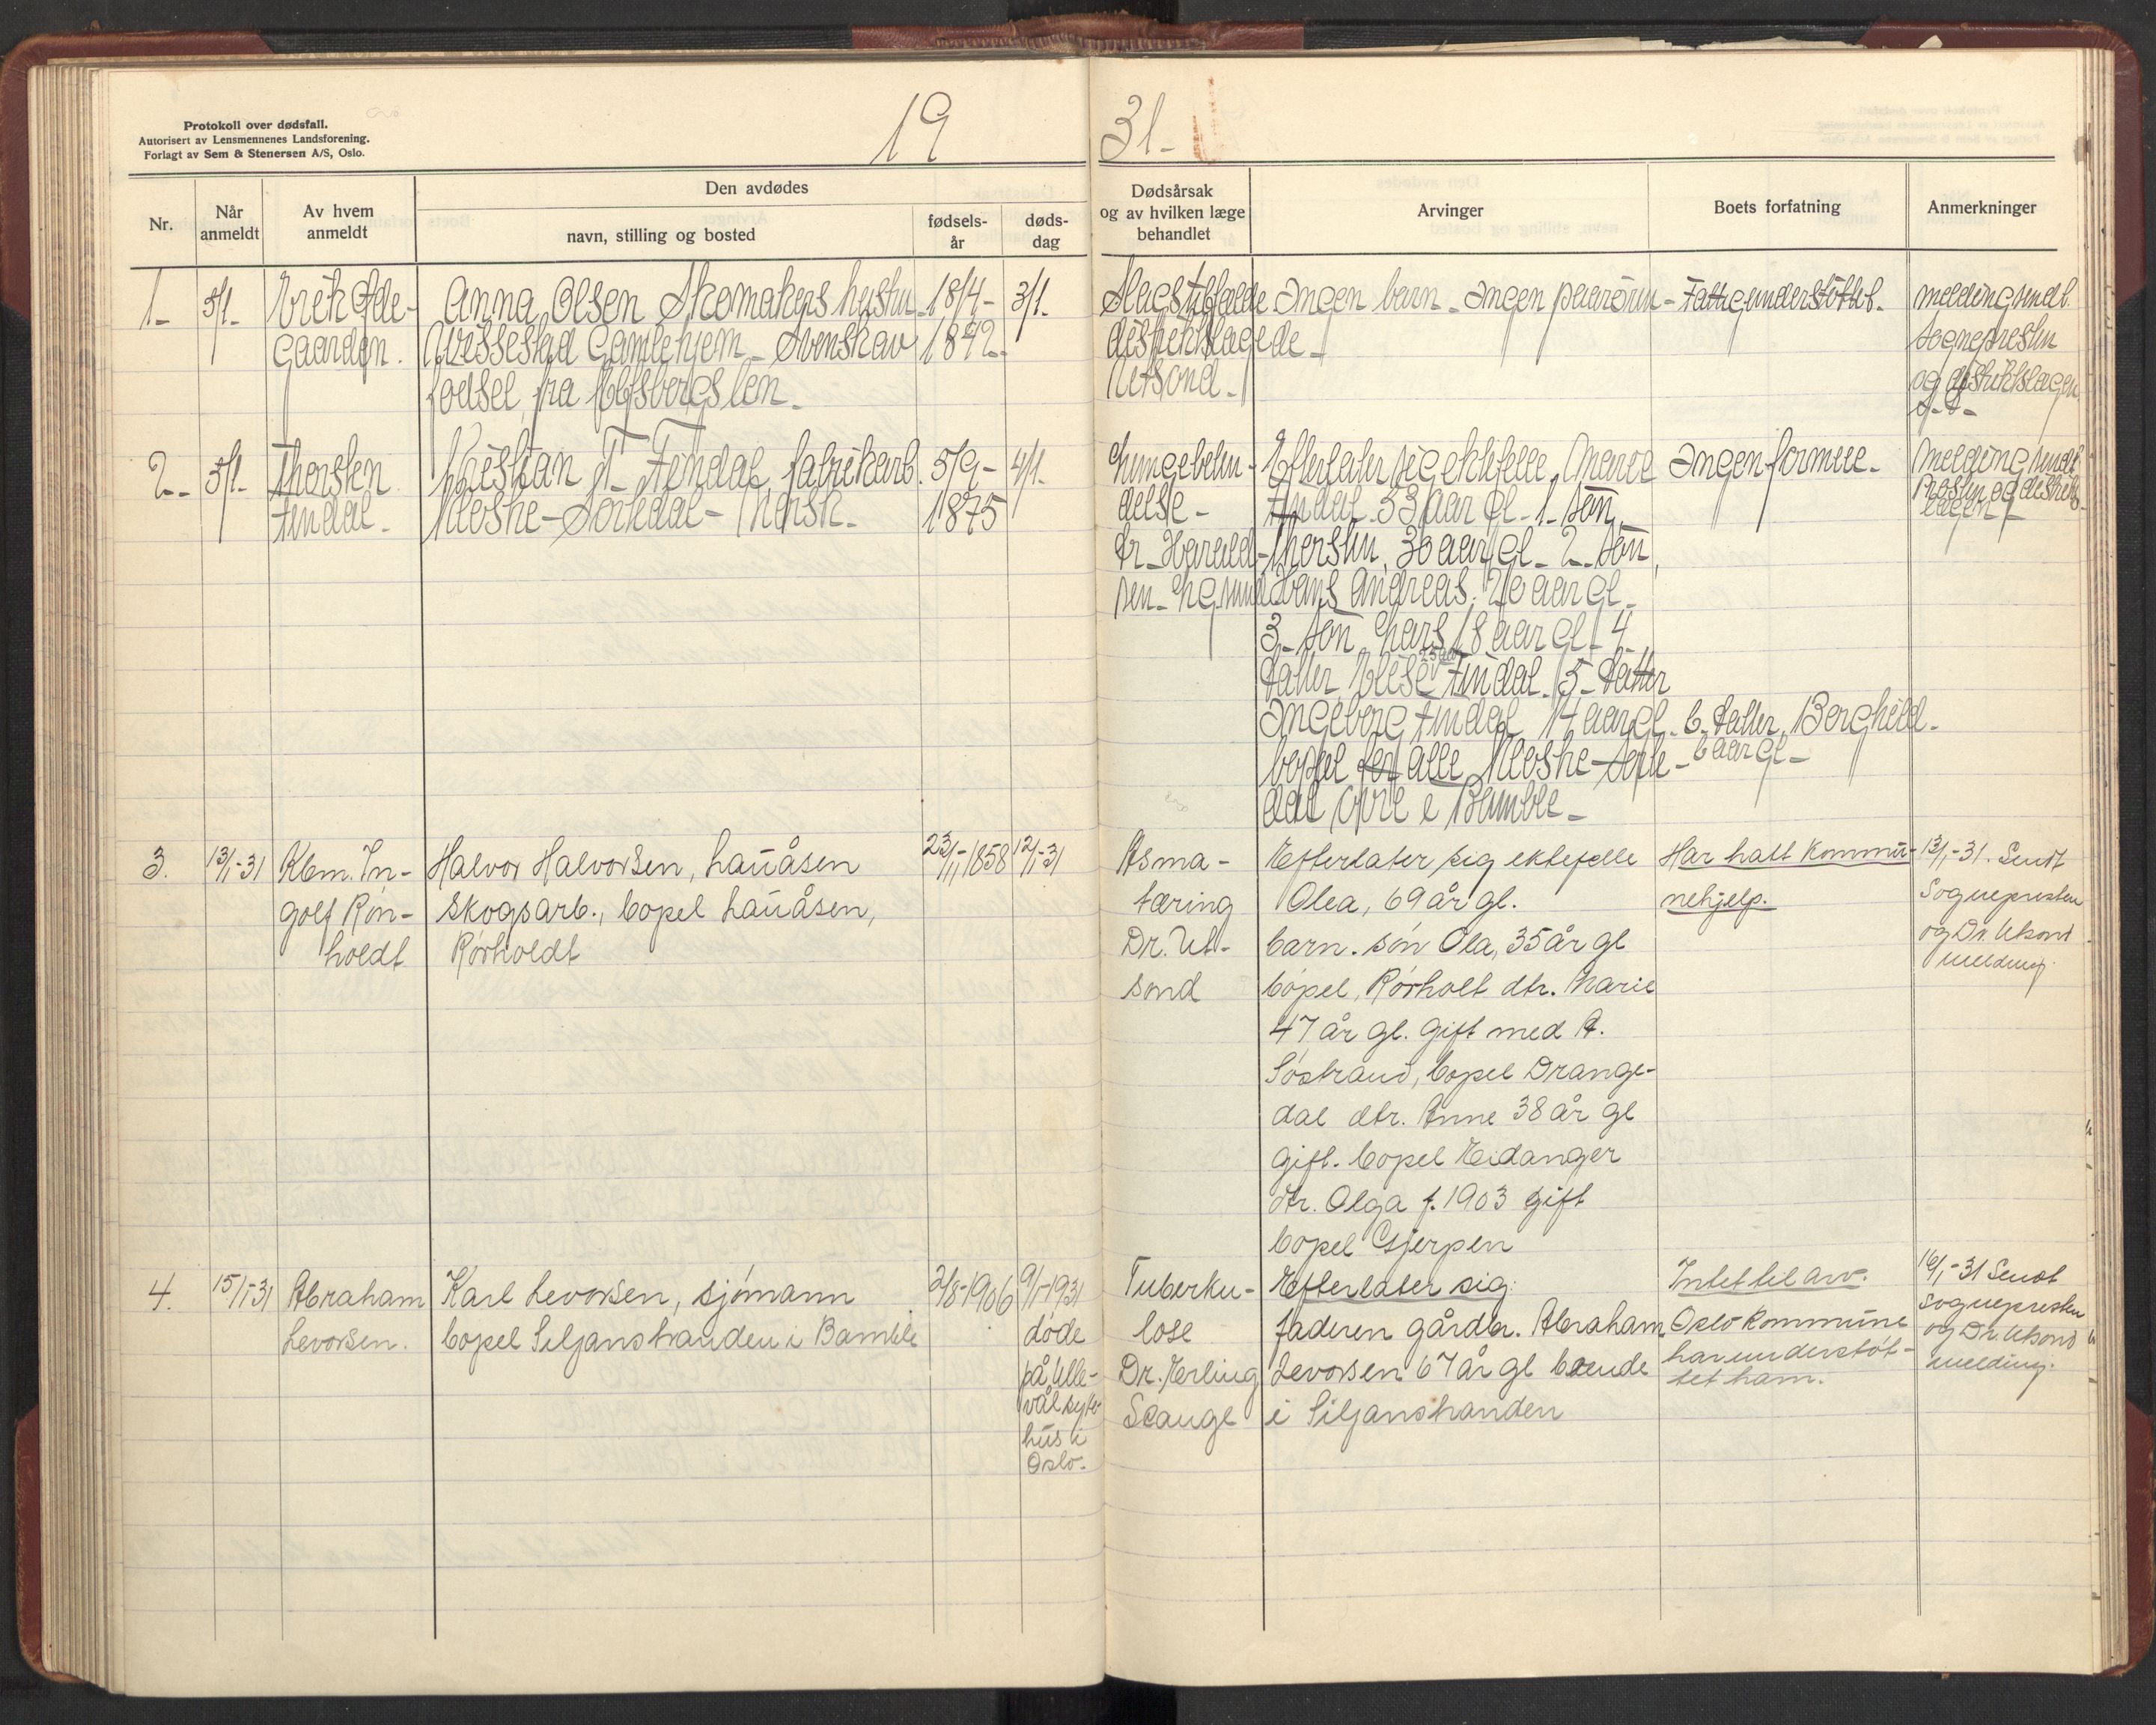 Protokoll over dødsfall.
Autorisert av Lensmennenes Landsforening.
Forlagt av Sem & Stenersen A/S, Oslo.
19 31-
Nr.
Når
anmeldt
Av hvem
anmeldt
Den avdødes
navn, stilling og bosted
fødsels-
år
døds-
dag
Dødsårsak
og av hvilken læge
behandlet
Arvinger
Boets forfatning
Anmerkninger
1-
5/1-
gaarden.
Anna Olsen Skomakers hustru
Gamlehjem - Svensk av
fødsel fra Elfsbergs len.
18/4-
1842-
3/1-
Slagtilfælde
distriktslæge
Utsond-
Ingen barn - Ingen
Fattigunderstøttet-
Melding sendt
Sognepresten
og distriktslægen
2-
5/1-
Thorsten
Findal-
Kristian T. Findal, fabrikarb.
- Norsk-
5/9-
1875
4/1-
Lungebeten-
delse-
Dr. Harald-
sen-
Efterlater sig ektefelle, Maren
Findal 53 aar gl- 1- søn,
Thorsten, 30 aar gl- 2- søn,
Hans Andreas, 20 aar gl-
3- søn, Lars 18 aar gl- 4-
datter, Elise Findal- 5- datter
Ingeborg Findal 14 aar gl- 6- datter, Borghild-
6 aar gl-
bopel for alle
dal øvre i Bamble-
Ingen formue-
Melding sendt
Presten og distrikts-
lægen-
3.
13/1-31
Kbm. In-
golf Rör-
holdt
Halvor Halvorsen, Lauåsen
Skogsarb., bopel Lauåsen,
Rörholdt
23/11-1858
12/1-31
Asma-
tæring
Dr. Ut-
sond
Efterlater sig ektefelle
Olea, 69 år gl.
barn. sön Ola, 35 år gl
bopel, Rörholt dtr. Marie
47 år gl. gift med A.
Söstrand, bopel Drange-
dal dtr. Anne 38 år gl
gift. bopel Eidanger
dtr. Olga f. 1903 gift
bopel Gjerpen
Har hatt kommu-
nehjelp.
13/1-31. Sendt
Sognepresten
og Dr. Utsond
melding.
4.
15/1-31
Abraham
Levorsen.
Karl Levorsen, sjömann
bopel Siljanstranden i Bamble
2/8-1906
9/1-1931
döde
på Ulle-
vål syke-
hus i
Oslo.
Tuberku-
lose
Dr. Erling
Efterlater sig:
faderen gårdbr. Abraham
Levorsen 67 år gl boende
i Siljanstranden
Intet til arv.
Oslo kommune
har understöt-
tet ham.
16/1-31 Sendt
sognepresten
og Dr. Utsond
melding.